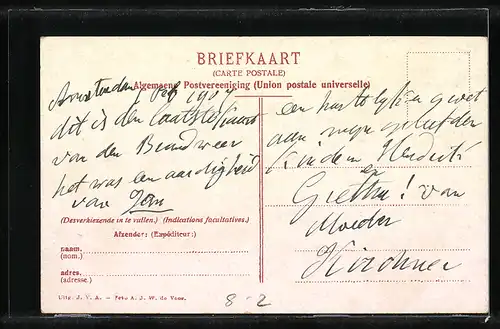 BRIEFKAART
(CARTE POSTALE)
Algemeene Postvereeniging (Union postale universelle)
Amsterdam 1907
dit is den laatste kaart
van den Brandweer
het was een aardigheid
van Jan
(Desverkiezende in te vullen.) (Indications facultatives.)
Afzender: (Expéditeur:)
naam.
(nom.)
adres.
(adresse.)
Uitg. J. V. A. - Foto A. J. W. de Veer.
een hartelijken groet
aan mijn geliefden
Kinderen Hendrik
en
Grietha! van
Moeder
Kirchner
8-2